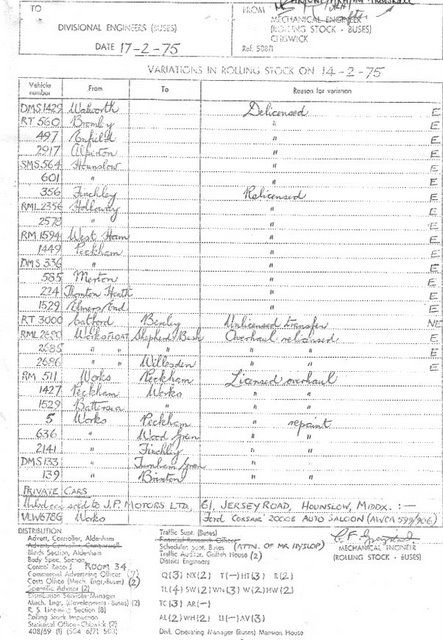 TO
DIVISIONAL ENGINEERS (BUSES)
DATE 17-2-75
FROM
MECHANICAL ENGINEER
(ROLLING STOCK - BUSES)
CHISWICK
Ref. 508/1
VARIATIONS IN ROLLING STOCK ON 14-2-75
Vehicle number From To Reason for variation
DMS 1429 Walworth Delicensed E
RT 560 Bromley " E
497 Enfield " E
2917 Alperton " E
SMS 564 Hounslow " E
601 " " E
356 Finchley Relicensed E
RML 2356 Holloway " E
2578 " " E
RM 1594 West Ham " E
1449 Peckham " E
DMS 336 " " E
585 Merton " E
224 Thornton Heath " E
1529 Elmers End " E
RT 3000 Catford Bexley Unlicensed transfer NE
RML 2690 Works Float Shepherds Bush Overhaul relicensed E
2685 " " " " " E
2686 " " Willesden " " E
RM 511 Works Peckham Licensed overhaul
1427 Peckham Works " "
1529 Battersea " " "
5 Works Peckham " repaint
636 " Wood Green " "
2141 " Finchley " "
DMS 133 " Turnham Green " "
139 " Brixton " "
PRIVATE CARS
Unlicensed sold to J.P. MOTORS LTD, 61, JERSEY ROAD, HOUNSLOW, MIDDX. :—
VLW678G Works Ford CORSAIR 2000E AUTO SALOON
DISTRIBUTION
Advert. Controller, Aldenham
Blinds Section, Aldenham
Body Spec. Section
Control Record ROOM 34
Commercial Advertising Officer
Costs Office (Mech. Engr. Buses) (2)
Scientific Advisor (2)
Mech. Engr. (Development - Buses) (2)
R. S. Licensing Section (8)
Rolling Stock Inspection
Statistical Office - Chiswick (2)
Traffic Supt. (Buses)
Schedules Supt. Buses (ATTN. OF MR HYSLOP)
Traffic Auditor, Griffith House (2)
District Engineers
MECHANICAL ENGINEER
(ROLLING STOCK - BUSES)
Q(3) NX(2) T(-) HT(3) R(2)
TC(3) AR(-)
Divl. Operating Manager (Buses) Manwon House